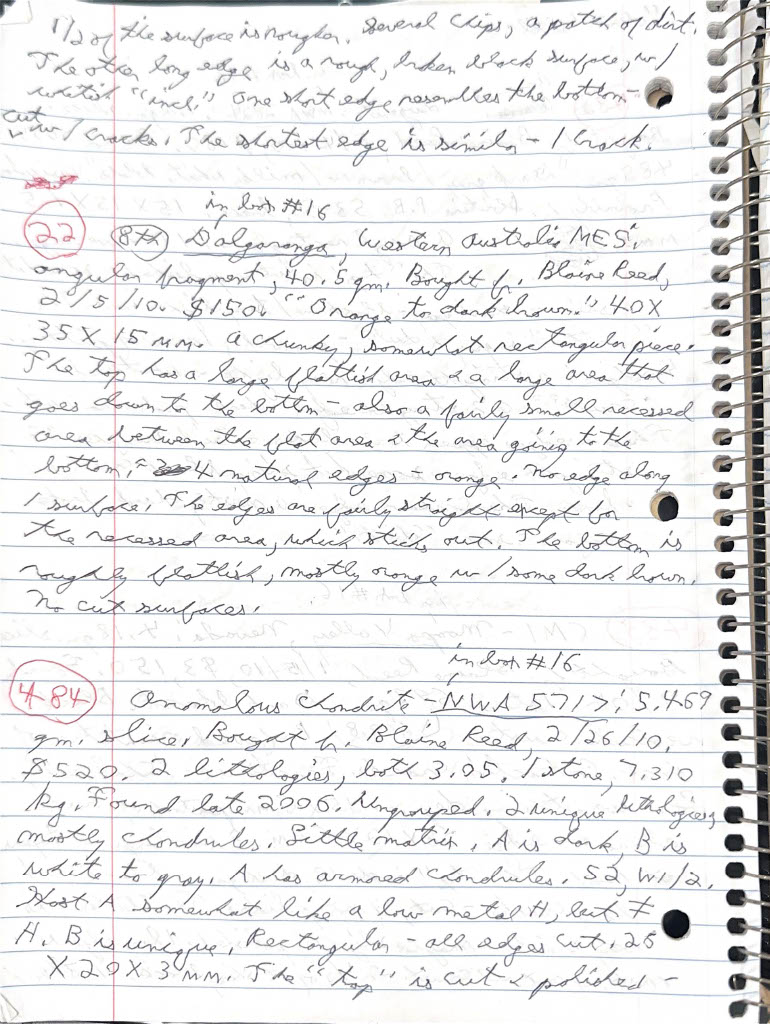 1/2 of the surface is rougher. Several chips, a patch of dirt.
The other long edge is a rough, broken black surface, w/
whitish "incl." One short edge resembles the bottom -
cut w/ cracks. The shortest edge is similar - 1 crack.
in box #16
22 8th Dalgaranga, Western Australia MES.
angular fragment, 40.5 gm. Bought fr. Blaine Reed,
2/5/10. $150. "Orange to dark brown." 40 X
35 X 15 mm. A chunky, somewhat rectangular piece.
The top has a large flattish area & a large area that
goes down to the bottom - also a fairly small recessed
area between the flat area & the area going to the
bottom. 4 natural edges - orange. No edge along
1 surface. The edges are fairly straight except for
the recessed area, which sticks out. The bottom is
roughly flattish, mostly orange w/ some dark brown.
No cut surfaces.
in box #16
484 Anomalous Chondrite - NWA 5717; 5.469
gm. slice. Bought fr. Blaine Reed, 2/26/10.
$520. 2 lithologies, both 3.05. 1 stone, 7.310
kg. Found late 2006. Ungrouped. 2 unique lithologies,
mostly chondrules. Little matrix. A is dark, B is
white to gray. A has armored chondrules. S2, W1/2.
Host A somewhat like a low metal H, but ≠
H. B is unique. Rectangular - all edges cut. 25
X 20 X 3 mm. The "top" is cut & polished -